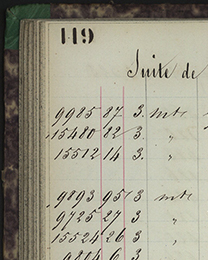 119
Suite de
9985 87 3. mte
15480 82 3. "
15512 14 3. "
9893 95 3 mte
9725 27 3 "
15524 26 3 "
9804 6 3